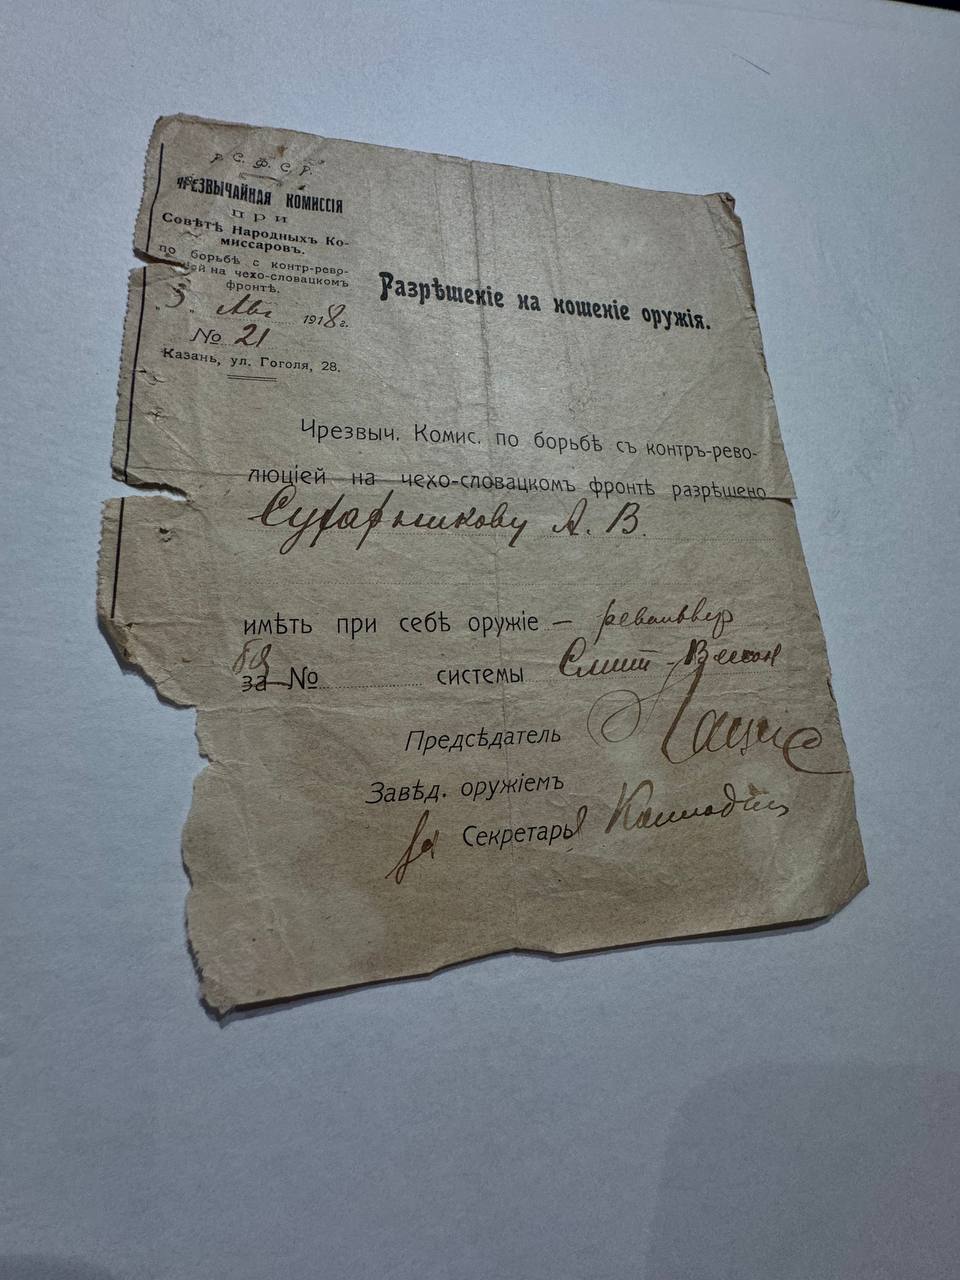 Р. С. Ф. С. Р.
ЧРЕЗВЫЧАЙНАЯ КОМИССІЯ
при
Совѣтѣ Народныхъ Ко-
миссаровъ.
по борьбѣ с контр-рево-
ціей на чехо-словацком
фронтѣ.
"5" Авг 1918г.
№ 21
Казань, ул. Гоголя, 28.
Разрѣшеніе на ношеніе оружія.
Чрезвыч. Комис. по борьбѣ съ контръ-рево-
люціей на чехо-словацкомъ фронтѣ разрѣшено
Сухарникову А. В.
имѣть при себѣ оружіе — револьвер
за №                 системы Смит-Вессон
Предсѣдатель Лацис
Завѣд. оружіемъ
За Секретарь